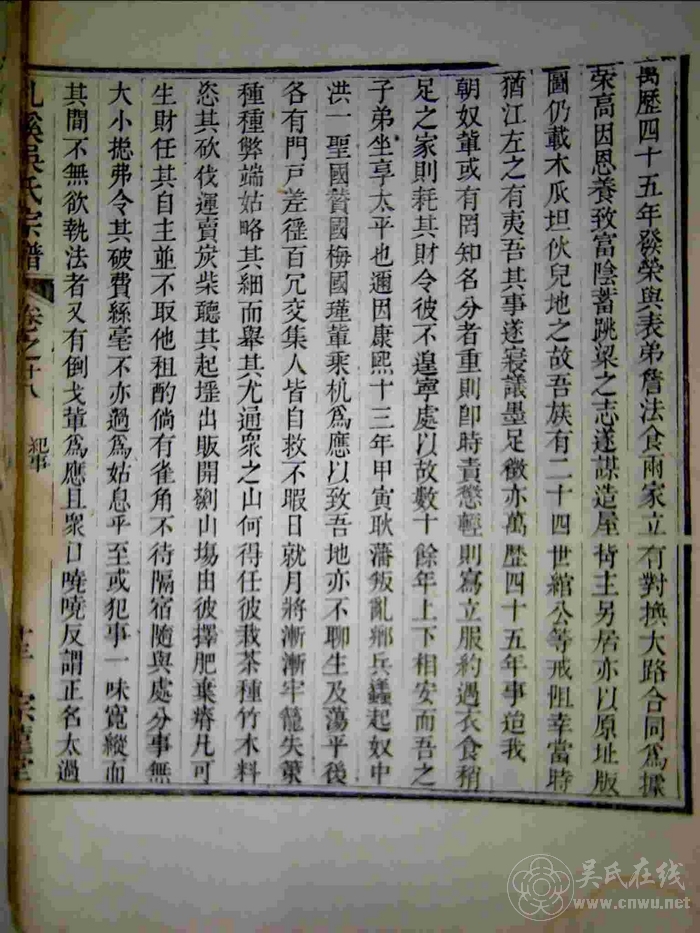 萬歷四十五年發榮與表弟詹法食兩家立有對換大路合同爲據
榮高因恩養致富陰蓄跳梁之志遂謀造屋背主另居亦以原址版
圖仍載木瓜坦伙兒地之故吾族有二十四世綰公等戒阻幸當時
猶江左之有夷吾其事遂寢議墨足徵亦萬歷四十五年事迨我
朝奴軰或有罔知名分者重則卽時責懲輕則寫立服約遇衣食稍
足之家則耗其財令彼不遑寧處以故數十餘年上下相安而吾之
子弟坐享太平也邇因康熙十三年甲寅耿藩叛亂鄉兵蠭起奴中
洪一聖國贊國梅國瑾軰乘机爲應以致吾地亦不聊生及蕩平後
各有門戸差徭百冗交集人皆自救不暇日就月將漸漸牢籠失策
種種弊端姑略其細而舉其尤通衆之山何得任彼栽茶種竹木料
恣其砍伐運賣炭柴聽其起壥出販開劉山塲由彼擇肥棄瘠凡可
生財任其自主並不取他租酌倘有雀角不待隔宿隨與處分事無
大小捴弗令其破費絲毫不亦過爲姑息乎至或犯事一味寬縱而
其間不無欲執法者又有倒戈軰爲應且衆口嘵嘵反謂正名太過
溪吳氏宗譜 卷之十八 紀事 宗
吴氏在线
www.cnwu.net